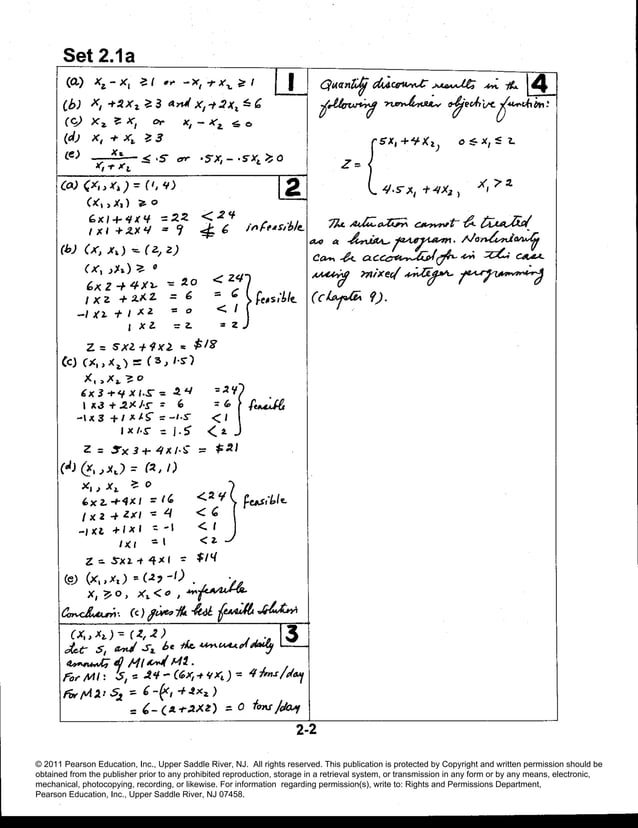 Set 2.1a
1
(a) x₂ - x₁ ≥ 1 or -x₁ + x₂ ≥ 1
(b) x₁ + 2x₂ ≥ 3 and x₁ + 2x₂ ≤ 6
(c) x₂ ≥ x₁ or x₁ - x₂ ≤ 0
(d) x₁ + x₂ ≥ 3
(e) x₂ / (x₁ + x₂) ≤ .5 or .5x₁ - .5x₂ ≥ 0
2
(a) (x₁, x₂) = (1, 4)
(x₁, x₂) ≥ 0
6x1 + 4x4 = 22 < 24
1x1 + 2x4 = 9 ≰ 6 infeasible
(b) (x₁, x₂) = (2, 2)
(x₁, x₂) ≥ 0
6x2 + 4x2 = 20 < 24
1x2 + 2x2 = 6 = 6
-1x2 + 1x2 = 0 < 1
1x2 = 2 = 2
feasible
Z = 5x2 + 4x2 = $18
(c) (x₁, x₂) = (3, 1.5)
x₁, x₂ ≥ 0
6x3 + 4x1.5 = 24 = 24
1x3 + 2x1.5 = 6 = 6
-1x3 + 1x1.5 = -1.5 < 1
1x1.5 = 1.5 < 2
feasible
Z = 5x3 + 4x1.5 = $21
(d) (x₁, x₂) = (2, 1)
x₁, x₂ ≥ 0
6x2 + 4x1 = 16 < 24
1x2 + 2x1 = 4 < 6
-1x2 + 1x1 = -1 < 1
1x1 = 1 < 2
feasible
Z = 5x2 + 4x1 = $14
(e) (x₁, x₂) = (2, -1)
x₁ ≥ 0, x₂ < 0, infeasible
Conclusion: (c) gives the best feasible solution
3
(x₁, x₂) = (2, 2)
Let S₁ and S₂ be the unused daily
amounts of M1 and M2.
For M1: S₁ = 24 - (6x₁ + 4x₂) = 4 tons/day
For M2: S₂ = 6 - (x₁ + 2x₂)
= 6 - (2 + 2x2) = 0 tons/day
4
Quantity discount results in the
following nonlinear objective function:
Z = { 5x₁ + 4x₂, 0 ≤ x₁ ≤ 2
4.5x₁ + 4x₂, x₁ > 2
The situation cannot be treated
as a linear program. Nonlinearity
can be accounted for in this case
using mixed integer programming
(chapter 9).
2-2
© 2011 Pearson Education, Inc., Upper Saddle River, NJ. All rights reserved. This publication is protected by Copyright and written permission should be
obtained from the publisher prior to any prohibited reproduction, storage in a retrieval system, or transmission in any form or by any means, electronic,
mechanical, photocopying, recording, or likewise. For information regarding permission(s), write to: Rights and Permissions Department,
Pearson Education, Inc., Upper Saddle River, NJ 07458.